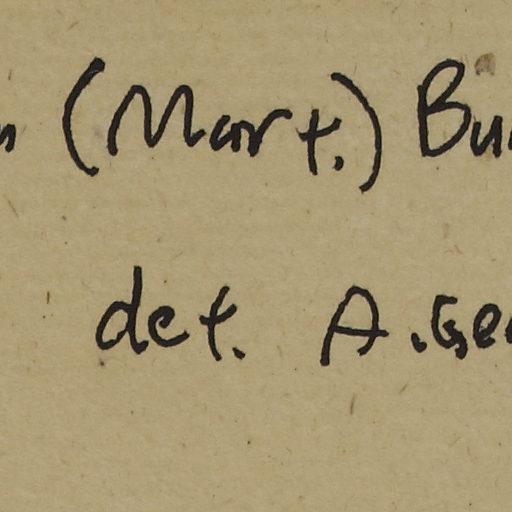 (Mart.) Bu
det. A. Ge